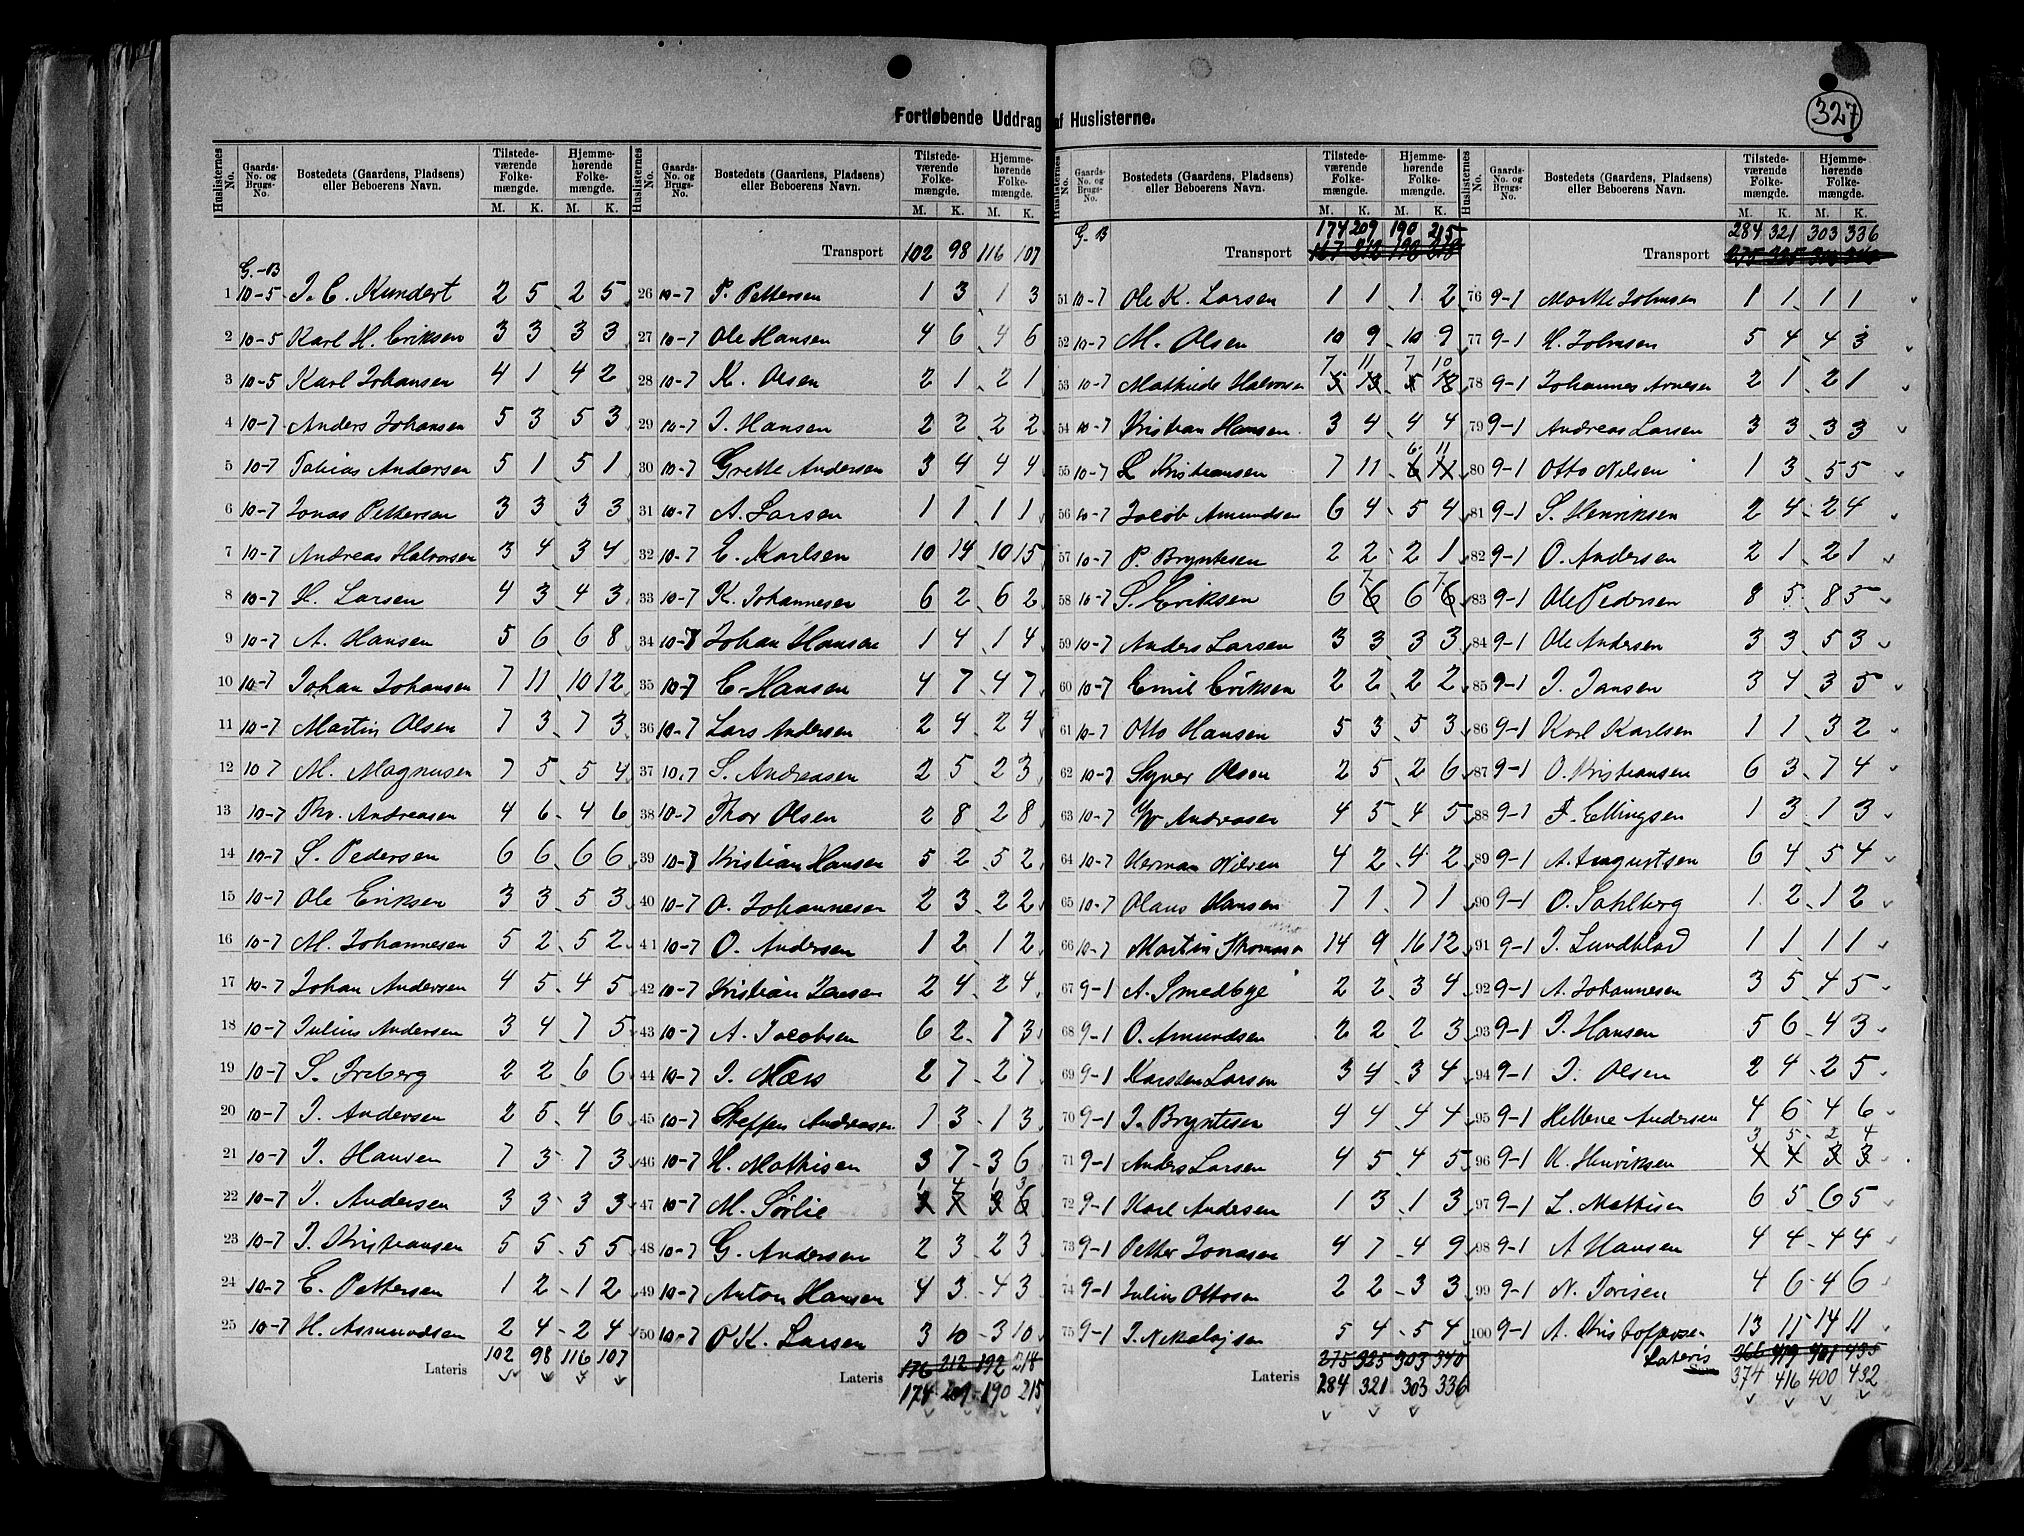 Fortløbende Uddrag af Huslisterne.
327
Huslisternes No. Gaards-No. og Brugs-No. Bostedets (Gaardens, Pladsens) eller Beboerens Navn. Tilstedeværende Folkemængde. M. K. Hjemmehørende Folkemængde. M. K.
G.-B
1 10-5 J. C. Kundert 2 5 2 5
2 10-5 Karl H. Eriksen 3 3 3 3
3 10-5 Karl Johansen 4 1 4 2
4 10-7 Anders Johansen 5 3 5 3
5 10-7 Tobias Andersen 5 1 5 1
6 10-7 Jonas Pettersen 3 3 3 3
7 10-7 Andreas Halvorsen 3 4 3 4
8 10-7 H. Larsen 4 3 4 3
9 10-7 A. Hansen 5 6 6 8
10 10-7 Johan Johansen 7 11 10 12
11 10-7 Martin Olsen 7 3 7 3
12 10 7 M. Magnusen 7 5 5 4
13 10-7 Thv. Andreasen 4 6 4 6
14 10-7 S. Pedersen 6 6 6 6
15 10-7 Ole Eriksen 3 3 5 3
16 10-7 M. Johannesen 5 2 5 2
17 10-7 Johan Andersen 4 5 4 5
18 10-7 Julius Andersen 3 4 7 5
19 10-7 S. Friberg 2 2 6 6
20 10-7 J. Andersen 2 5 4 6
21 10-7 J. Hansen 7 3 7 3
22 10-7 J. Andersen 3 3 3 3
23 10-7 J. Kristiansen 5 5 5 5
24 10-7 E. Pettersen 1 2 1 2
25 10-7 H. Asmundsen 2 4 2 4
Lateris 102 98 116 107
Huslisternes No. Gaards-No. og Brugs-No. Bostedets (Gaardens, Pladsens) eller Beboerens Navn. Tilstedeværende Folkemængde. M. K. Hjemmehørende Folkemængde. M. K.
Transport 102 98 116 107
26 10-7 P. Pettersen 1 3 1 3
27 10-7 Ole Hansen 4 6 4 6
28 10-7 K. Olsen 2 1 2 1
29 10-7 J. Hansen 2 2 2 2
30 10-7 Grethe Andersen 3 4 4 4
31 10-7 A. Larsen 1 1 1 1
32 10-7 E. Karlsen 10 14 10 15
33 10-7 K. Johannesen 6 2 6 2
34 10-7 Johan Hansen 1 4 1 4
35 10-7 E. Hansen 4 7 4 7
36 10-7 Lars Andersen 2 4 2 4
37 10.7 S. Andreasen 2 5 2 3
38 10-7 Thor Olsen 2 8 2 8
39 10-7 Kristian Hansen 5 2 5 2
40 10-7 O. Johannesen 2 3 2 2
41 10-7 O. Andersen 1 2 1 2
42 10-7 Kristian Jensen 2 4 2 4
43 10-7 A. Jacobsen 6 2 7 3
44 10-7 J. Næss 2 7 2 7
45 10-7 Steffen Andreasen 1 3 1 3
46 10-7 H. Mathisen 3 7 3 6
1 4 1 3
47 10-7 M. Sørlie 3 7 3 6
48 10-7 G. Andersen 2 3 2 3
49 10-7 Anton Hansen 4 3 4 3
50 10-7 O K. Larsen 3 10 3 10
Lateris 176 212 192 218
174 209 190 215
Huslisternes No. Gaards-No. og Brugs-No. Bostedets (Gaardens, Pladsens) eller Beboerens Navn. Tilstedeværende Folkemængde. M. K. Hjemmehørende Folkemængde. M. K.
G.-B 174 209 190 215
Transport
51 10-7 Ole K. Larsen 1 1 1 2
52 10-7 M. Olsen 10 9 10 9
7 11 7 10
53 10-7 Mathilde Halvorsen 5 13 5 18
54 10-7 Kristian Hansen 3 4 4 4
6 11
55 10-7 L Kristiansen 7 11 6 11
56 10-7 Jacob Amundsen 6 4 5 4
57 10-7 P. Bryntesen 2 2 2 1
7 7
58 10-7 S. Eriksen 6 6 6 6
59 10-7 Anders Larsen 3 3 3 3
60 10-7 Emil Eriksen 2 2 2 2
61 10-7 Otto Hansen 5 3 5 3
62 10-7 Syver Olsen 2 5 2 6
63 10-7 Andreasen 4 5 4 5
64 10-7 Herman Nilsen 4 2 4 2
65 10-7 Olaus Hansen 7 1 7 1
66 10-7 Martin Thomassn 14 9 16 12
67 9-1 A. Smedbye 2 2 3 4
68 9-1 O. Amundsen 2 2 2 3
69 9-1 Karsten Larsen 3 4 3 4
70 9-1 J. Bryntesen 4 4 4 4
71 9-1 Anders Larsen 4 5 4 5
72 9-1 Karl Andersen 1 3 1 3
73 9-1 Petter Jonasen 4 7 4 9
74 9-1 Julius Ottosen 2 2 3 3
75 9-1 J. Nikolajsen 5 4 5 4
Lateris 275 325 303 340
284 321 303 336
Huslisternes No. Gaards-No. og Brugs-No. Bostedets (Gaardens, Pladsens) eller Beboerens Navn. Tilstedeværende Folkemængde. M. K. Hjemmehørende Folkemængde. M. K.
284 321 303 336
Transport
76 9-1 Marthe Johnsen 1 1 1 1
77 9-1 H. Johnsen 5 4 4 3
78 9-1 Johannes Arnesen 2 1 2 1
79 9-1 Andreas Larsen 3 3 3 3
80 9-1 Otto Nilsen 1 3 5 5
81 9-1 S. Henriksen 2 4 2 4
82 9-1 O. Andersen 2 1 2 1
83 9-1 Ole Pedersen 8 5 8 5
84 9-1 Ole Andersen 3 3 5 3
85 9-1 J. Jansen 3 4 3 5
86 9-1 Karl Karlsen 1 1 3 2
87 9-1 O. Kristiansen 6 3 7 4
88 9-1 F. Ellingsen 1 3 1 3
89 9-1 A. Augustsen 6 4 5 4
90 9-1 O. Sahlberg 1 2 1 2
91 9-1 J. Lundblad 1 1 1 1
92 9-1 A. Johannesen 3 5 4 5
93 9-1 J. Hansen 5 6 4 3
94 9-1 J. Olsen 2 4 2 5
95 9-1 Hellene Andersen 4 6 4 6
3 5 2 4
96 9-1 K. Henriksen 4 4 3 3
97 9-1 L. Mathisen 6 5 6 5
98 9-1 A Hansen 4 4 4 4
99 9-1 N. Torisen 4 6 4 6
100 9-1 A. Kristoffersen 13 11 14 11
Lateris 366 419 401 435
374 416 400 432